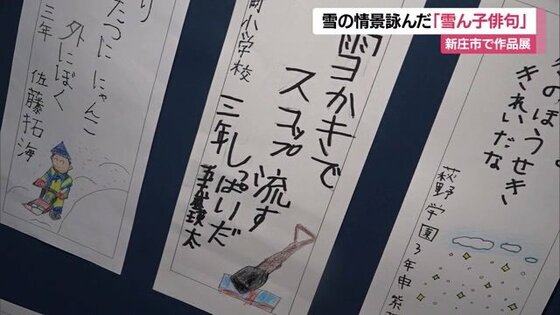 雪の情景詠んだ「雪ん子俳句」
新庄市で作品展
雪かきで
スコップ流す
しっぱいだ
小学校
三年
たつに にゃんこ
外にぼく
三年 佐藤拓海
のほうせき
きれいだな
萩野学園3年